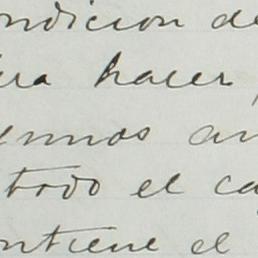 ndicion de
ra hacer
unos an
todo el ca
ntiene el